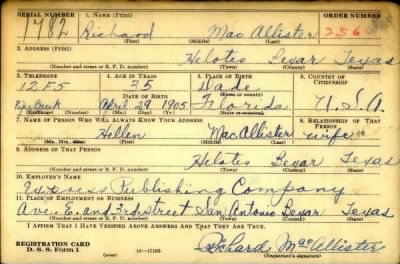 SERIAL NUMBER 1. NAME (Print) ORDER NUMBER
1782 Richard Mac Allister 256
(First) (Middle) (Last)
2. ADDRESS (Print)
Helotes Bexar Texas
(Number and street or R. F. D. number) (Town) (County) (State)
3. TELEPHONE 4. AGE IN YEARS 5. PLACE OF BIRTH 6. COUNTRY OF CITIZENSHIP
12F5 35 Dade
DATE OF BIRTH (Town or county)
Creek April 29, 1905 Florida U.S.A.
(Exchange) (Number) (Mo.) (Day) (Yr.) (State or country)
7. NAME OF PERSON WHO WILL ALWAYS KNOW YOUR ADDRESS 8. RELATIONSHIP OF THAT PERSON
Hellen MacAllister wife
(Mr., Mrs., Miss) (First) (Middle) (Last)
9. ADDRESS OF THAT PERSON
Helotes Bexar Texas
(Number and street or R. F. D. number) (Town) (County) (State)
10. EMPLOYER'S NAME
Express Publishing Company
11. PLACE OF EMPLOYMENT OR BUSINESS
Ave. E. and 3rd Street San Antonio Bexar Texas
(Number and street or R. F. D. number) (Town) (County) (State)
I AFFIRM THAT I HAVE VERIFIED ABOVE ANSWERS AND THAT THEY ARE TRUE.
REGISTRATION CARD
D. S. S. FORM 1 (over) 16-17105 Richard MacAllister
(Registrant's signature)